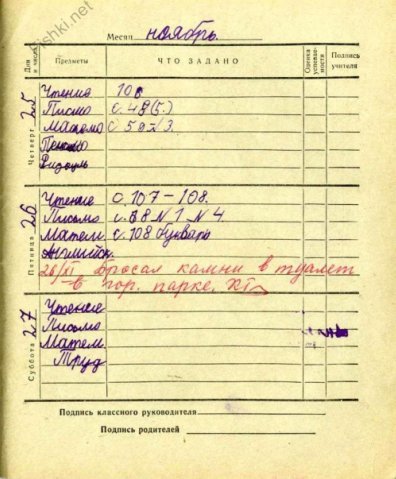 fishki.net
Месяц ноябрь.
Дни и числа Предметы ЧТО ЗАДАНО Оценка успеваемости Подпись учителя
Четверг 25
Чтение 106
Письмо с. 48 (5.)
Матем с 59 3.
Пение
Пятница 26
Чтение с. 107-108.
Письмо с. 38 № 1 № 4
Матем. с. 108 букварь
Английск.
26/XI бросал камни в туалет
в гор. парке.
Суббота 27
Чтение
Письмо
Матем.
Труд
Подпись классного руководителя
Подпись родителей